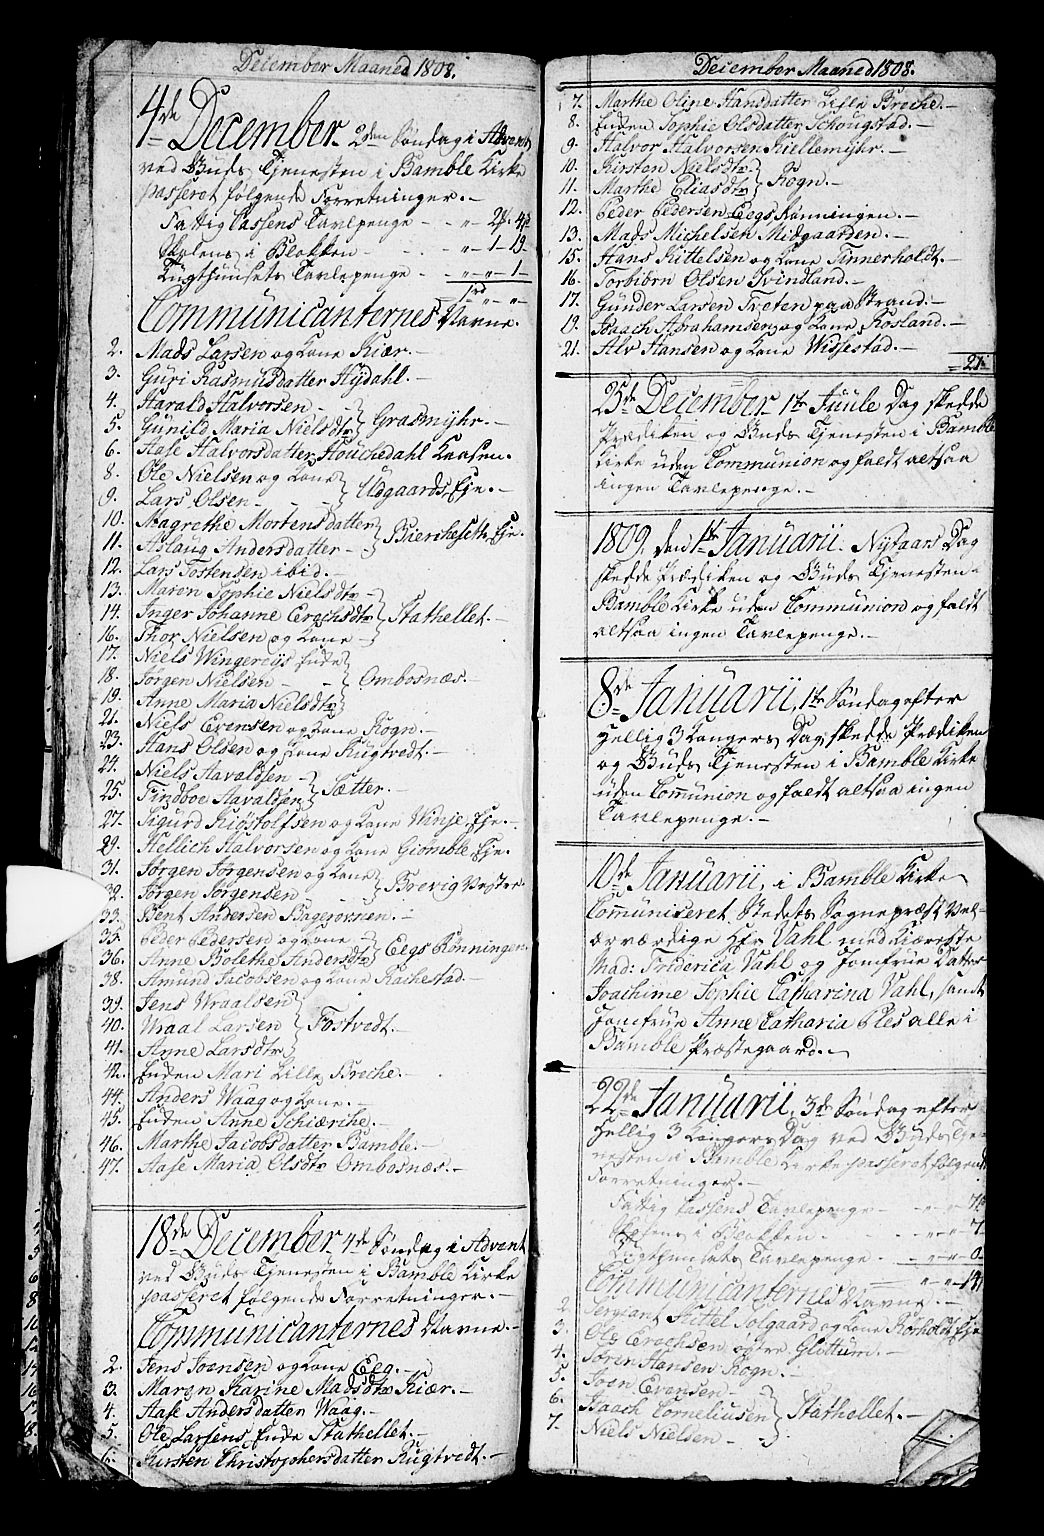 December Maaned 1808.
4de December. 2den Søndag i Advent
ved Guds Tjenesten i Bamble Kirke
passeret følgende Forretninger. -
Fattig Cassens Tavlepenge - - " 2 4
Skolens i Blokken - - " 1 - 19
Tugthuusets Tavlepenge - - " - " - 1 -
Communicanternes Navne.
2. Mads Larsen og Kone Kiær. -
3. Guri Rasmusdatter Hydahl. -
4. Harald Halvorsen - -
5. Gunild Maria Nielsdtr } Grasmyhr. -
6. Aase Halvorsdatter Houchedahl Kaasen.
8. Ole Nielsen og Kone
9. Lars Olsen - - } Udgaards Eje. -
10. Magrethe Mortensdatter
11. Aslaug Andersdatter - } Bierckesett Eje.
12. Lars Tostensen ibid. -
13. Maren Sophie Nielsdtr -
14. Inger Johanne Erichsdtr } Stathellet. -
16. Thor Nielsen og Kone -
17. Niels Wingereijs Enke
18. Jørgen Nielsen - - } Ombosnæs. -
19. Anne Maria Nielsdtr
21. Niels Evensen og Kone Rogn. -
23. Hans Olsen og Kone Rugtvedt. -
24. Niels Aavaldsen -
25. Findboe Aavaldsen } Sætter. -
27. Sigurd Rigstolfsen og Kone Winje Eje. -
29. Hellich Halvorsen og Kone Giomble Eje.
31. Jørgen Jørgensen og Kone
32. Jørgen Jørgensen } Brevig Vestre
33. Bent Andersen Bagerovnen. -
35. Peder Pedersen og Kone -
36. Anne Bolethe Andersdtr } Eegs Rønningen.
38. Amund Jacobsen og Kone Rachestad. -
39. Jens Wraalsen
40. Wraal Larsen } Tostvedt. -
41. Anne Larsdtr
42. Enken Mari Lille Broche. -
44. Anders Waag og Kone. -
45. Enken Anne Schiæriche. -
46. Marthe Jacobsdatter Bamble. -
47. Aase Maria Olsdtr Ombosnæs. -
18de December 4de Søndag i Advent
ved Guds Tjenesten i Bamble Kirke
passeret følgende Forretninger. -
Communicanternes Navne. -
2. Jens Joensen og Kone Eeg. -
3. Maren Karine Madsdtr Kiær. -
4. Aase Andersdatter Waag. -
5. Ole Larsens Enke Stathellet. -
6. Kirsten Christophersdatter Rugtvedt. -
December Maaned 1808.
7. Marthe Oline Hansdatter Lille Broche. -
8. Enken Sophie Olsdatter Schougstad. -
9. Halvor Halvorsen Kiellemyhr. -
10. Kirsten Nielsdtr
11. Marthe Eliasdtr } Rogn. -
12. Peder Pedersen Eegs Rønningen. -
13. Mads Michelsen Midgaarden. -
15. Hans Kittelsen og Kone Tinnerholdt. -
16. Torbiørn Olsen Qvindland. -
17. Gunder Larsen Treten paa Strand. -
19. Isaach Abrahamsen og Kone Rosland. -
21. Alv Hansen og Kone Wissestad. -
= 21
25de December 1te Juule Dag skedde
Prædiken og Guds Tjenesten i Bamble
Kirke uden Communion og faldt altsaa
ingen Tavlepenge. -
1809, den 1te Januarii. Nytaars Dag
skedde Prædiken og Guds Tjenesten i
Bamble Kirke uden Communion og faldt
altsaa ingen Tavlepenge. -
8de Januarii, 1te Søndag efter
Hellig 3 Kongers Dag, skedde Prædiken
og Guds Tjenesten i Bamble Kirke
uden Com̄union og faldt altsaa ingen
Tavlepenge. -
10de Januarii, i Bamble Kirke
Com̄uniseret Stedets Sognepræst Vel-
ærværdige Hr Vahl med Kiæreste
Mad: Friderica Vahl og Jomfrue Datter
Joachime Sophie Catharina Vahl, samt
Jomfrue Anne Catharia Ples alle i
Bamble Præstegaard. -
22de Januarii, 3de Søndag efter
Hellig 3 Kongers Dag ved Guds Tje-
nesten i Bamble Kirke passeret følgende
Forretninger. -
Fattig Cassens Tavlepenge - - " - " - 7
Skolens i Blokken - - " - " - 7
Tugthuusets Tavlepenge - " - " - 0
Communicanternes Navne. -
2. Sergiant Kittel Solgaard og Kone Rørholdt Eje
3. Ole Erochsen øvre Glittum. -
4. Søren Hansen Rogn. -
5. Joen Evensen -
6. Isaach Corneliusen } Stathellet. -
7. Niels Nielsen -